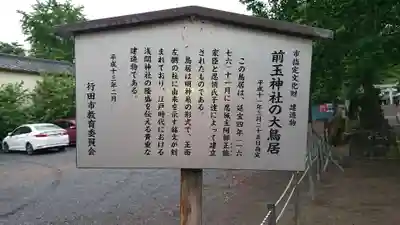 市指定文化財 建造物
前玉神社の大鳥居
平成十一年三月二十五日指定
この鳥居は、延宝四年(一六
七六)十一月に忍城主阿部正能
家臣と忍領氏子達によって建立
されたものである。
鳥居は明神系の形式で、正面
左側の社に由来を示す銘文が刻
まれており、江戸時代における
浅間神社の隆盛を伝える貴重な
建造物である。
平成十三年二月
行田市教育委員会